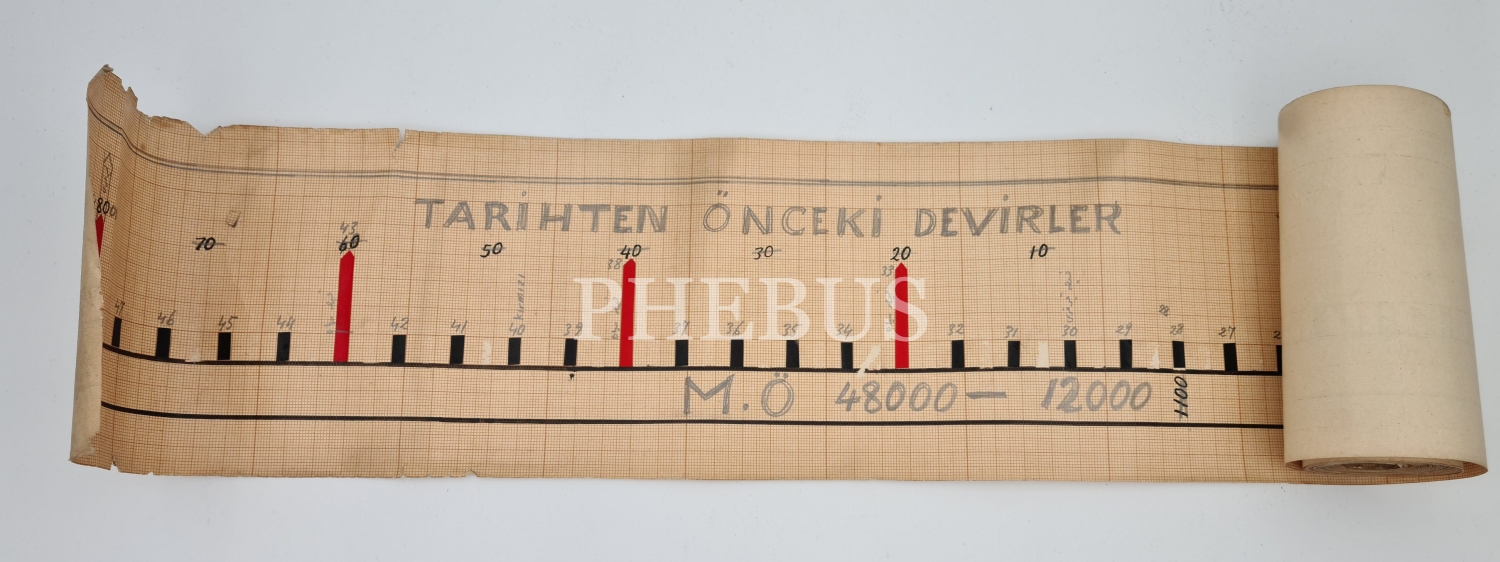 TARİHTEN ÖNCEKİ DEVİRLER
800
70 60 50 40 30 20 10
43 38 33
PHEBUS
kırmızı
47 46 45 44 42 41 40 39 37 36 35 34 32 31 30 29 28 28 27
M.Ö 48000 — 12000
1100